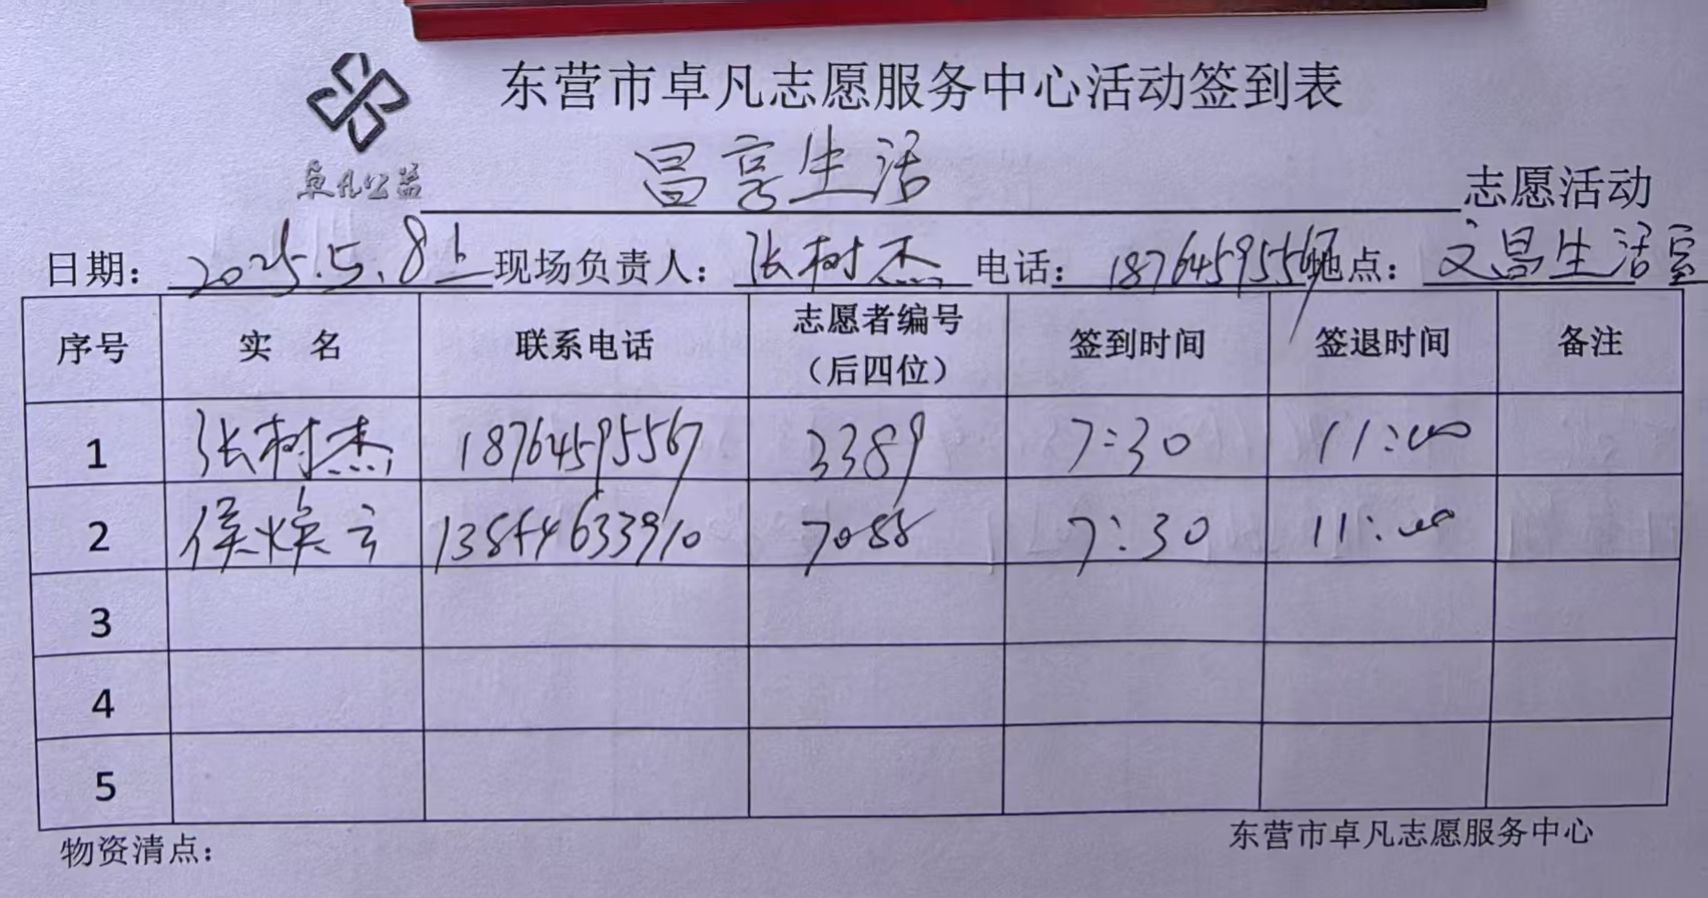 东营市卓凡志愿服务中心活动签到表
卓凡公益
昌享生活 志愿活动
日期：2025.5.8上 现场负责人：张树杰 电话：18764595567 地点：文昌生活室
序号 实 名 联系电话 志愿者编号（后四位） 签到时间 签退时间 备注
1 张树杰 18764595567 3389 7:30 11:00
2 侯焕云 13854633910 7088 7:30 11:00
3
4
5
物资清点： 东营市卓凡志愿服务中心